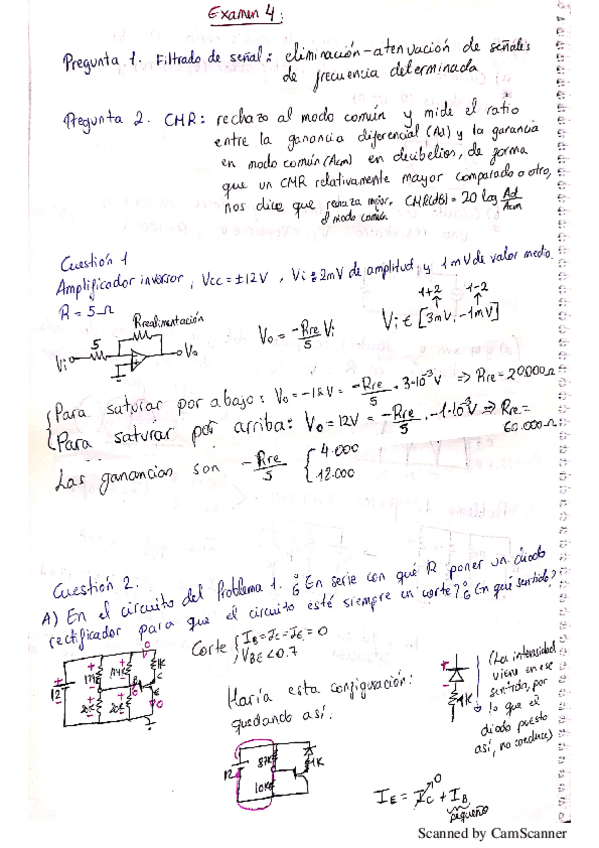 Examen 4:
Pregunta 1. Filtrado de señal: eliminación-atenuación de señales
de frecuencia determinada
Pregunta 2. CMR: rechazo al modo común y mide el ratio
entre la ganancia diferencial (Ad) y la ganancia
en modo común (Acm) en decibelios, de forma
que un CMR relativamente mayor comparado a otro,
nos dice que rechaza mejor CMR(dB) = 20 log Ad/Acm
el modo común.
Cuestión 1
Amplificador inversor, Vcc = ±12V, Vi = 2mV de amplitud, y 1mV de valor medio.
R = 5Ω
1+2 1-2
Rrealimentación
Vo = -Rre/5 Vi
Vi ∈ [3mV, -1mV]
5
Vi
Vo
Para saturar por abajo: Vo = -12V = -Rre/5 · 3·10⁻³V => Rre = 20000Ω
Para saturar por arriba: Vo = 12V = -Rre/5 · -1·10⁻³V => Rre =
60.000Ω
Las ganancias son -Rre/5 { 4.000
12.000
Cuestión 2.
A) En el circuito del Problema 1. ¿En serie con qué R poner un diodo
rectificador para que el circuito esté siempre en corte? ¿En qué sentido?
Corte { IB = IC = IE = 0
VBE < 0.7
1K
12
20K
Haría esta configuración:
quedando así:
1K
(La intensidad
viene en ese
sentido, por
lo que el
diodo puesto
así, no conduce)
12
87K
10K
1K
IE = IC + IB
0
pequeño
Scanned by CamScanner